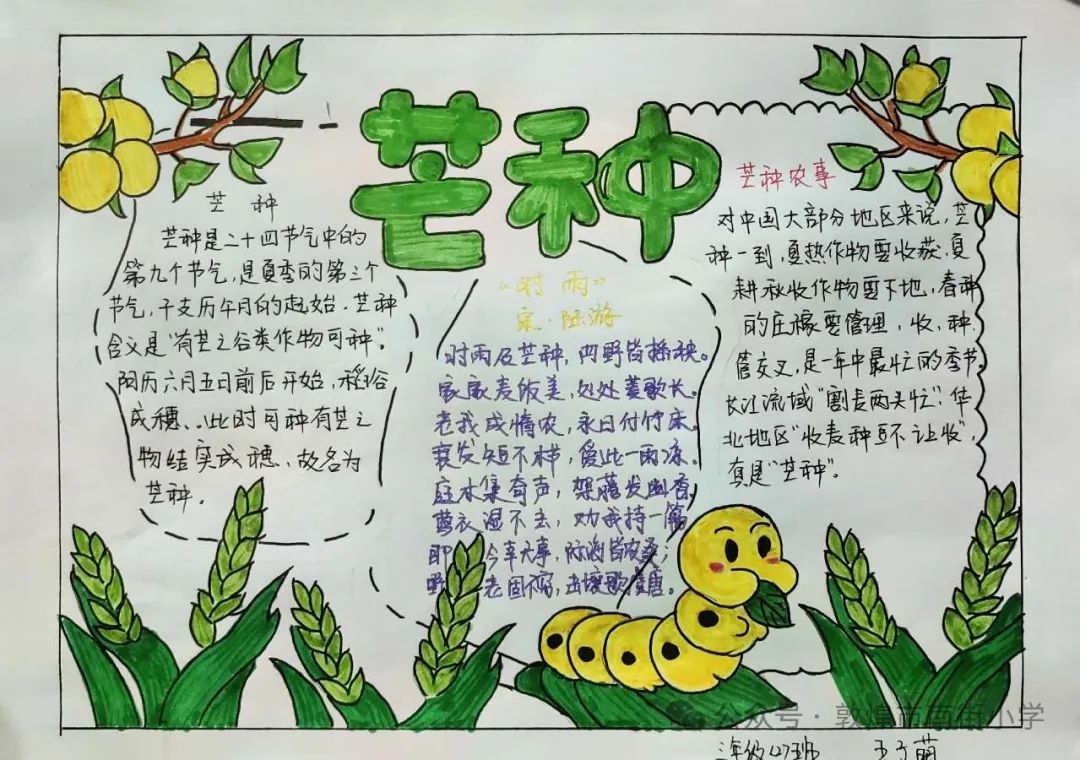 芒种
芒 种
芒种是二十四节气中的
第九个节气,是夏季的第三个
节气,干支历午月的起始.芒种
含义是"有芒之谷类作物可种"。
阳历六月五日前后开始,稻谷
成穗、..此时可种有芒之
物结实成穗、故名为
芒种.
"时雨"
宋·陆游
时雨及芒种,四野皆插秧。
家家麦饭美,处处菱歌长。
老我成惰农,永日付竹床。
衰发短不栉,爱此一雨凉。
庭木集奇声,架藤发幽香。
莺衣湿不去,劝我持一觞
即 今幸无事,际海皆农桑;
野 老固不穷,击壤歌虞唐。
芒种农事
对中国大部分地区来说,芒
种一到,夏熟作物要收获.夏
耕秋收作物要下地,春种
的庄稼要管理,收,种.
管交叉,是一年中最忙的季节.
长江流域"割麦两头忙";华
北地区"收麦种豆不让收",
真是"芒种"。
公众号·敦煌市南街小学
三年级(2)班